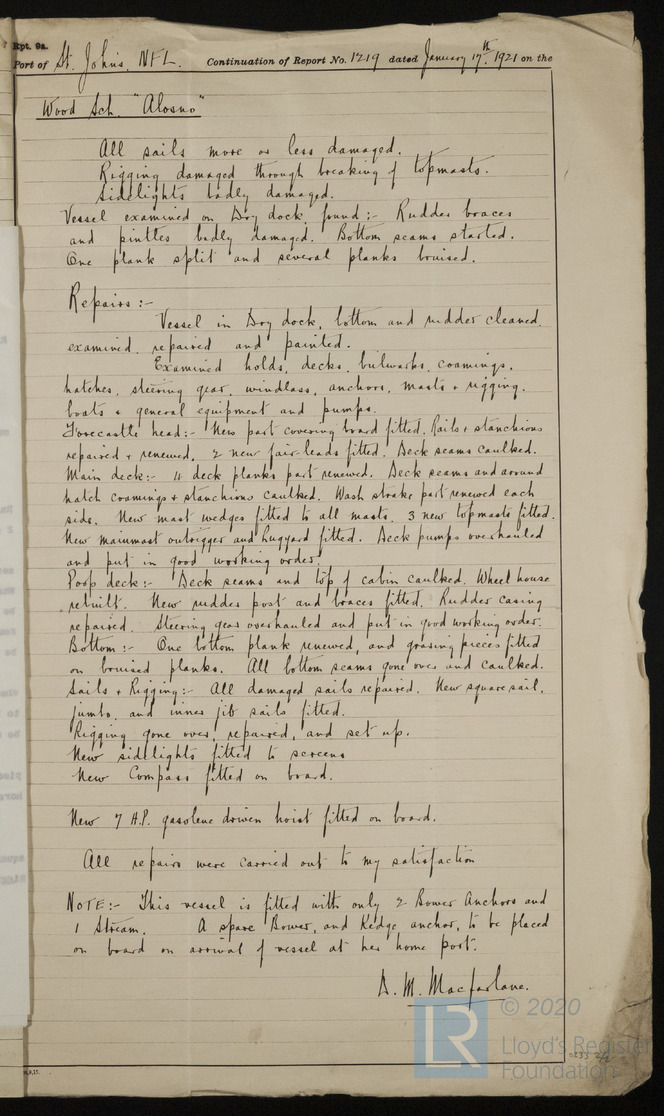 Rpt. 9a.
Port of St. Johns, NFL. Continuation of Report No. 1219 dated January 17th. 1921 on the
Wood Sch. "Alosno"
All sails more or less damaged.
Rigging damaged through breaking of topmasts.
Sidelights badly damaged.
Vessel examined on Dry dock, found :- Rudder braces
and pintles badly damaged. Bottom seams started.
One plank split and several planks bruised.
Repairs :-
Vessel in Dry dock, bottom and rudder cleaned,
examined, repaired and painted.
Examined holds, decks, bulwarks, coamings,
hatches, steering gear, windlass, anchors, masts & rigging,
boats & general equipment and pumps.
Forecastle head:- New part covering board fitted. Rails & stanchions
repaired & renewed, 2 new fair-leads fitted. Deck seams caulked.
Main deck:- 4 deck planks part renewed. Deck seams and around
hatch coamings & stanchions caulked. Wash strake part renewed each
side. New mast wedges fitted to all masts. 3 new topmasts fitted.
New mainmast outrigger and lugyard fitted. Deck pumps overhauled
and put in good working order.
Poop deck:- Deck seams and top of cabin caulked. Wheel house
rebuilt. New rudder post and braces fitted. Rudder casing
repaired. Steering gear overhauled and put in good working order.
Bottom :- One bottom plank renewed, and graving pieces fitted
on bruised planks. All bottom seams gone over and caulked.
Sails & Rigging:- All damaged sails repaired. New square sail,
jumbo, and inner jib sails fitted.
Rigging gone over, repaired, and set up.
New sidelights fitted to screens
New Compass fitted on board.
New 7 H.P. gasolene driven hoist fitted on board.
All repairs were carried out to my satisfaction
NOTE:- This vessel is fitted with only 2 Bower Anchors and
1 Stream. A spare Bower, and Kedge anchor, to be placed
on board on arrival of vessel at her home port.
D. M. Macfarlane.
© 2020
LR
Lloyd's Register
Foundation